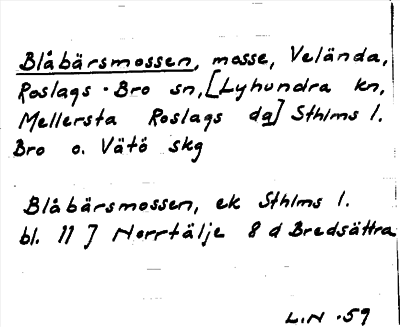 Blåbärsmossen, mosse, Velända,
Roslags-Bro sn, [Lyhundra kn,
Mellersta Roslags dg] Sthlms l.
Bro o. Vätö skg
Blåbärsmossen, ek Sthlms l.
bl. 11 J Norrtälje 8 d Bredsättra
L.N -59